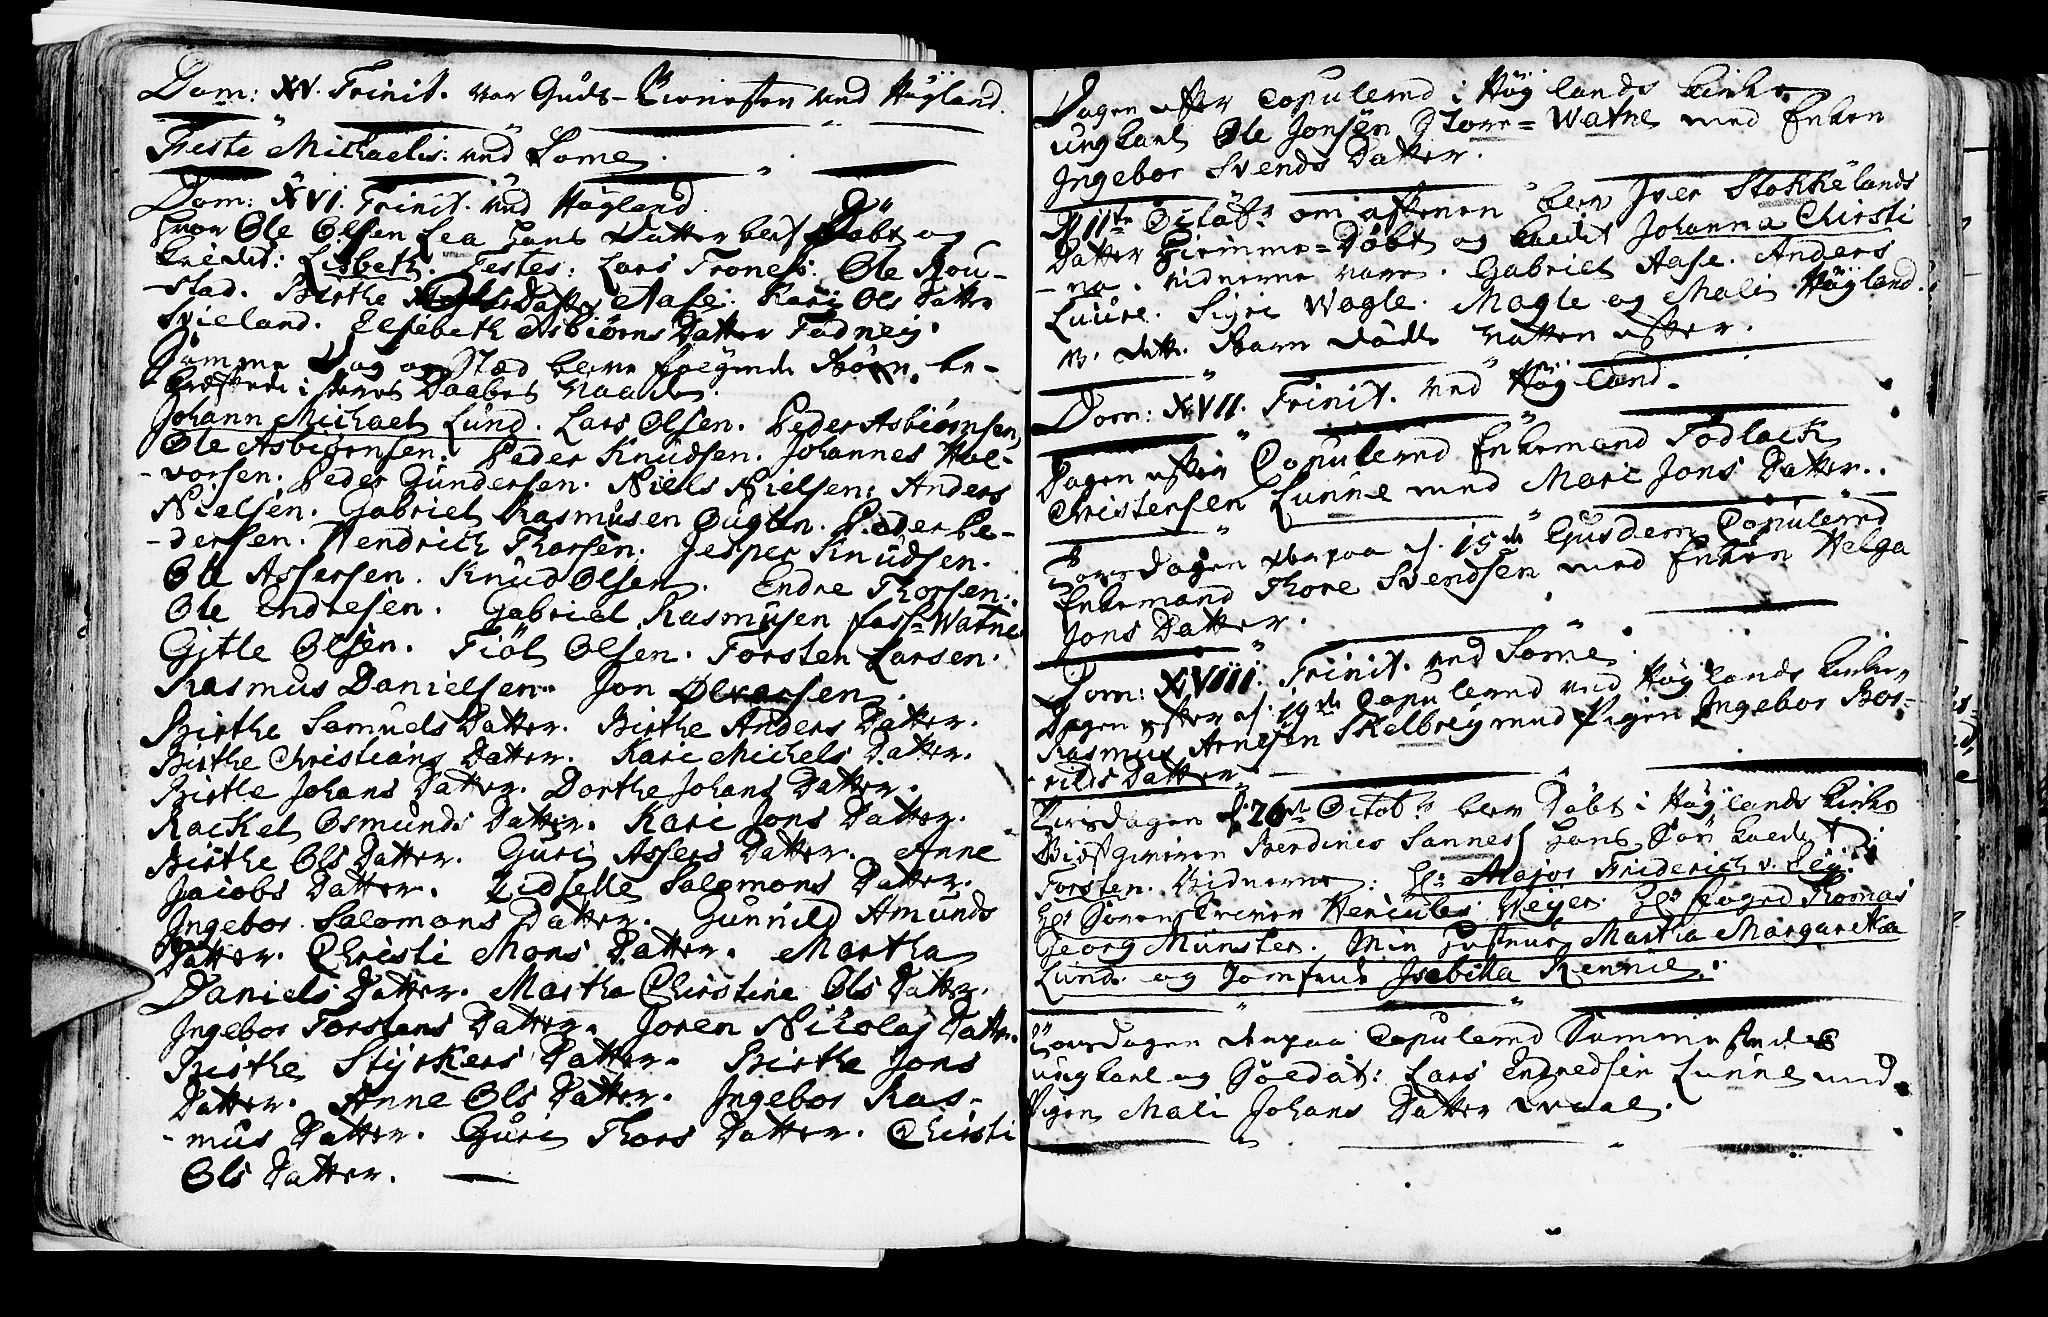 Dom: XV. Trinit. var Guds-Tienesten ved Høyland.
Festo Michaelis: ved Some.
Dom: XVI. Trinit. ved Høyland
hvor Ole Olsen Lea hans Datter blef Døbt og
kaldet: Lisbeth. Testes: Lars Trones. Ole Rou-
-stad. Birthe Datter Aase. Kari Ols Datter
Svieland. Elsebeth Asbiørns Datter Tadneig.
Samme Dag og Stæd bleve følgende Børn be-
-kræftede i deres Daabes Naade.
Johann Michael Lund. Lars Olsen. Peder Asbiørnsen,
Ole Asbiørnsen. Peder Knudsen. Johannes Hal-
-vorsen. Peder Gundersen. Niels Nielsen. Anders
Nielsen. Gabriel Rasmusen Auglen. Peder Pe-
-dersen. Hendrich Thorsen. Jesper Knudsen.
Ole Assersen. Knud Olsen. Endre Thorsen.
Ole Endresen. Gabriel Rasmusen Foss-Watne
Gitle Olsen. Tiøl Olsen. Torsten Larsen.
Rasmus Danielsen. Jon Olvarsen.
Birthe Samuels Datter. Birthe Anders Datter.
Birthe Christians Datter. Kari Michels Datter.
Birthe Johans Datter. Dorthe Johans Datter.
Rachel Osmunds Datter. Kari Jons Datter.
Birthe Ols Datter. Guri Assers Datter. Anne
Jacobs Datter. Zidselle Salomons Datter.
Ingebor Salomons Datter. Gunnild Amunds
Datter. Christi Mons Datter. Martha
Daniels Datter. Martha Christine Ols Datter.
Ingebor Torstens Datter. Joren Nicolaj Datter.
Birthe Styrkers Datter. Birthe Jons
Datter. Anne Ols Datter. Ingebor Ras-
-mus Datter. Guri Thors Datter. Christi
Ols Datter.
Dagen efter Copulered i Høylands Kirke
ungkarl Ole Jonsen Store-Watne med Enken
Ingebor Svends Datter.
d. 11te Octobr. om aftenen blev Iver Stokkelands
Datter Hiemme-Døbt og kaldet Johanna Christi
-na. Vidnerne vare. Gabriel Aase. Anders
Luure. Sigri Wagle. Magle og Mali Høyland.
NB. dette Barn døde Natten efter.
Dom: XVII. Trinit. ved Høyland.
Dagen efter Copulered Enkemand Todlack
Christensen Lunne med Mari Jons Datter.
Torsdagen derpaa d. 15de Ejusdem Copulered
Enkemand Thore Svendsen med Enken Helga
Jons Datter.
Dom: XVIII. Trinit. ved Some.
Dagen efter d. 19de Copulered ved Høylands Kirke
Rasmus Arnesen Skelbrej med Pigen Ingebor Bor-
-rilds Datter.
Tirsdagen d. 20de Octobr. blev Døbt i Høylands Kirke
Berdines Sannes hans Søn kaldet
Torsten. Vidnerne: Hr Major Friderich v.
Hr Hercules Weyer. Hr Foged Thomas
Georg Münster. Min Hustrue Martha Margaretha
Lund. og Jomfrue Isabella Rennie.
Torsdagen derpaa Copulered Sammestædes
ungkarl og Soldat: Lars Endredsen Lunne med
Pigen Mali Johans Datter